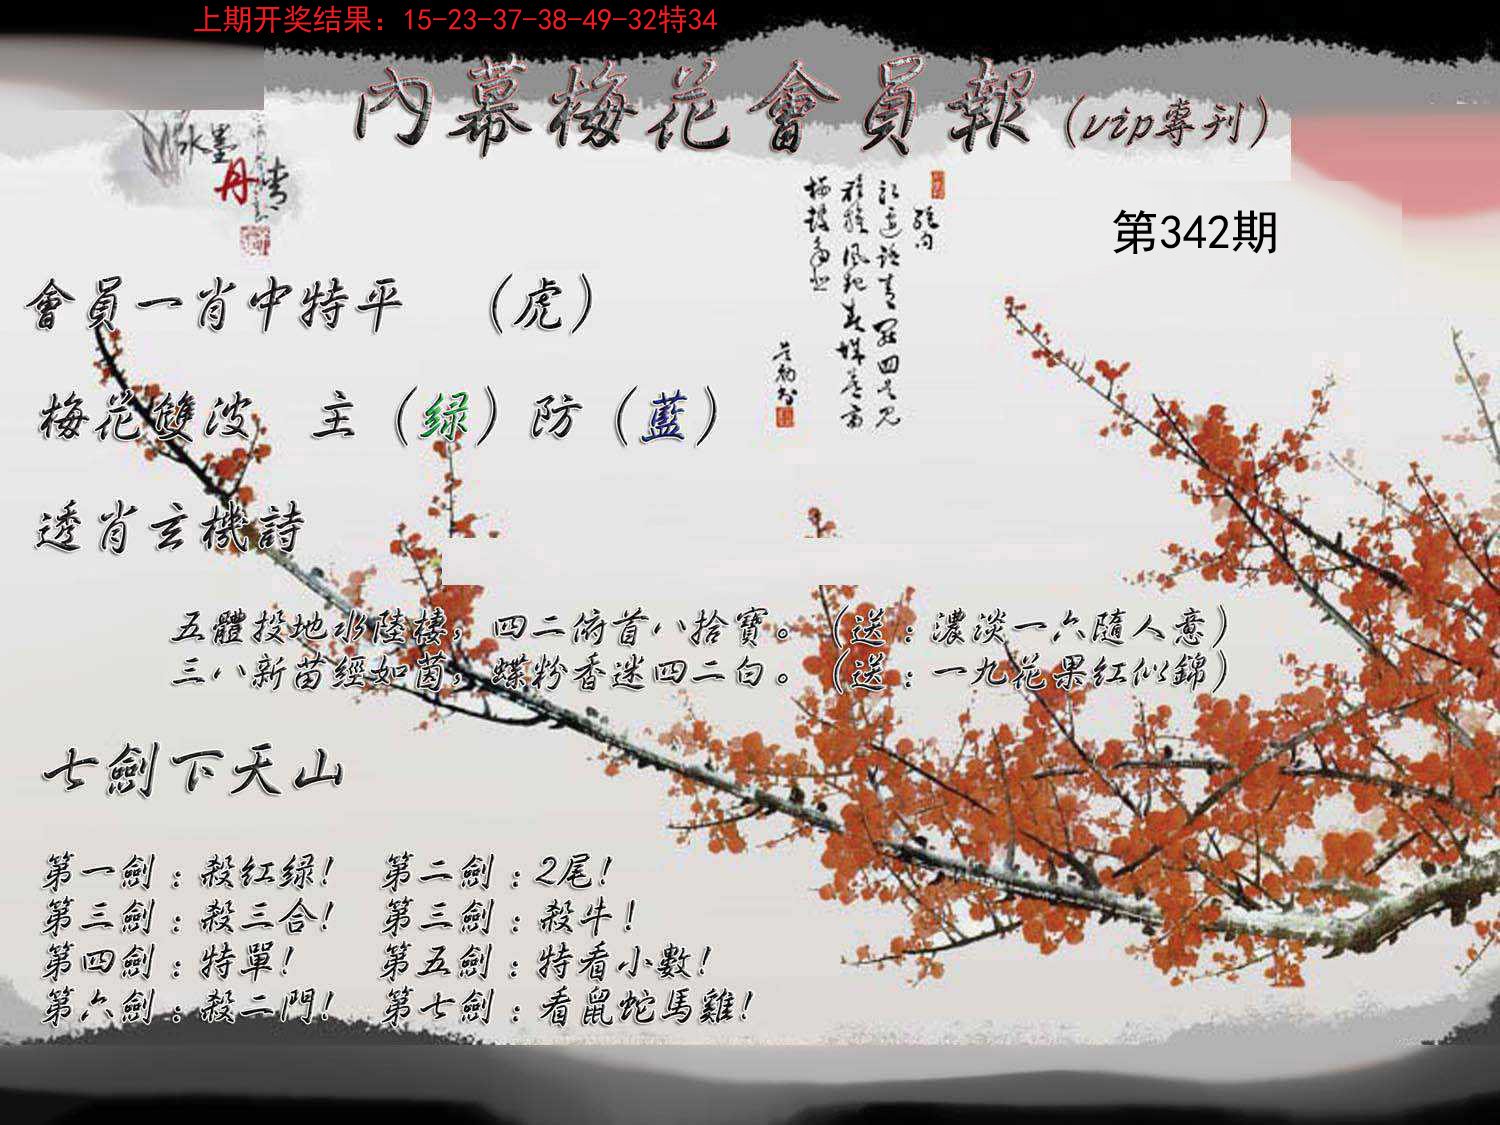 上期开奖结果：15-23-37-38-49-32特34
內幕梅花會員報（vip專刊）
水墨
丹青
第342期
會員一肖中特平　（虎）
梅花雙波　主（绿）防（藍）
透肖玄機詩
五體投地水陸棲，四二俯首八拾寶。（送：濃淡一六隨人意）
三八新苗經如茵，蝶粉香迷四二白。（送：一九花果紅似錦）
七劍下天山
第一劍：殺红绿！　第二劍：2尾！
第三劍：殺三合！　第三劍：殺牛！
第四劍：特單！　第五劍：特看小數！
第六劍：殺二門！　第七劍：看鼠蛇馬雞！